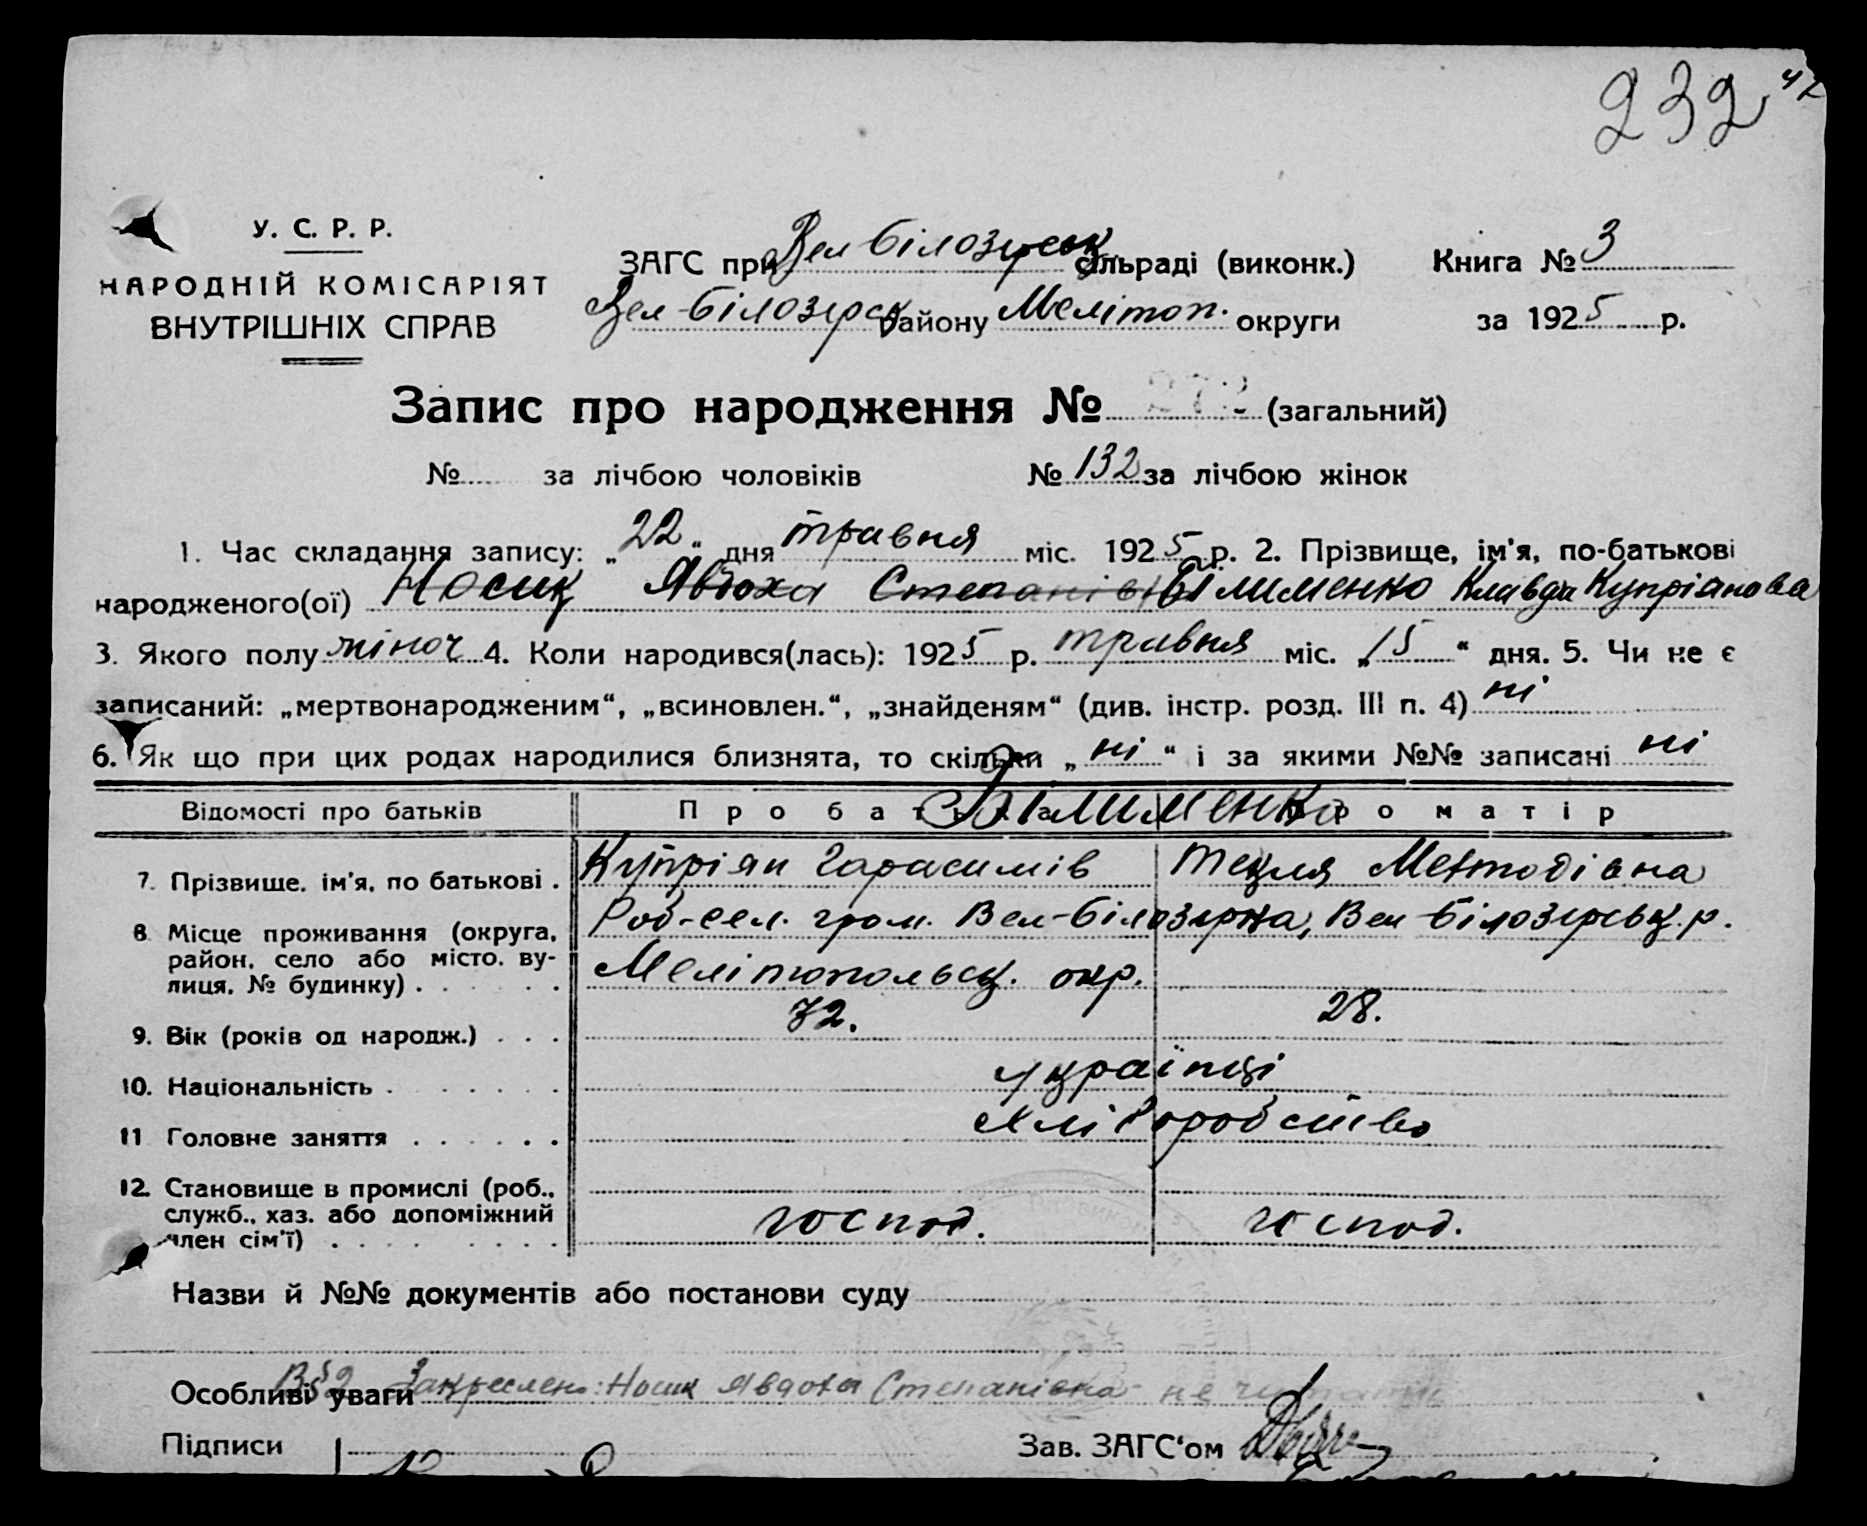 232
42
У. С. Р. Р.
НАРОДНІЙ КОМІСАРІЯТ
ВНУТРІШНІХ СПРАВ
ЗАГС при Вел Білозірськ сільраді (виконк.)
Вел-Білозірськ району Мелітоп. округи
Книга № 3
за 1925 р.
Запис про народження № 272 (загальний)
№ за лічбою чоловіків № 132 за лічбою жінок
1. Час складання запису: „22" дня травня міс. 1925 р. 2. Прізвище, ім'я, по-батькові
народженого(ої) Носик Явдоха Степанівна Білименко Клавдія Купріанова
3. Якого полу жіноч 4. Коли народився(лась): 1925 р. травня міс. „15" дня. 5. Чи не є
записаний: „мертвонародженим", „всиновлен.", „знайденям" (див. інстр. розд. III п. 4) ні
6. Як що при цих родах народилися близнята, то скільки „ні" і за якими №№ записані ні
Відомості про батьків Про батька Про матір
Білименко
7. Прізвище, ім'я, по батькові . Купріян Гарасимів Текля Методівна
8. Місце проживання (округа, район, село або місто, вулиця, № будинку) . Роб-сел. гром. Вел-Білозірка, Вел Білозірськ. р.
Мелітопольськ. окр.
9. Вік (років од народж.) . . . 32. 28.
10. Національність . українці
11 Головне заняття . хліборобство
12. Становище в промислі (роб., служб., хаз. або допоміжний член сім'ї) . господ. господ.
Назви й №№ документів або постанови суду
Особливі уваги В § 2 Закреслено: Носик Явдоха Степанівна не читати
Підписи Зав. ЗАГС'ом